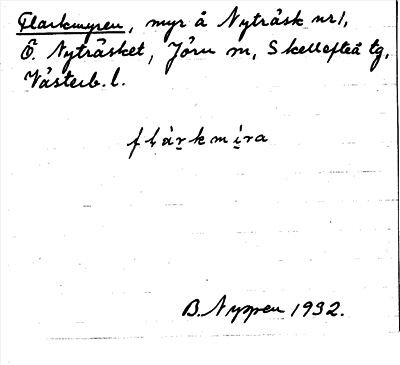 Flarkmyren, myr å Nyträsk nr 1,
Ö. Nyträsket, Jörn sn, Skellefteå tg,
Västerb. l.
flárkmira
B. Nyppen 1932.